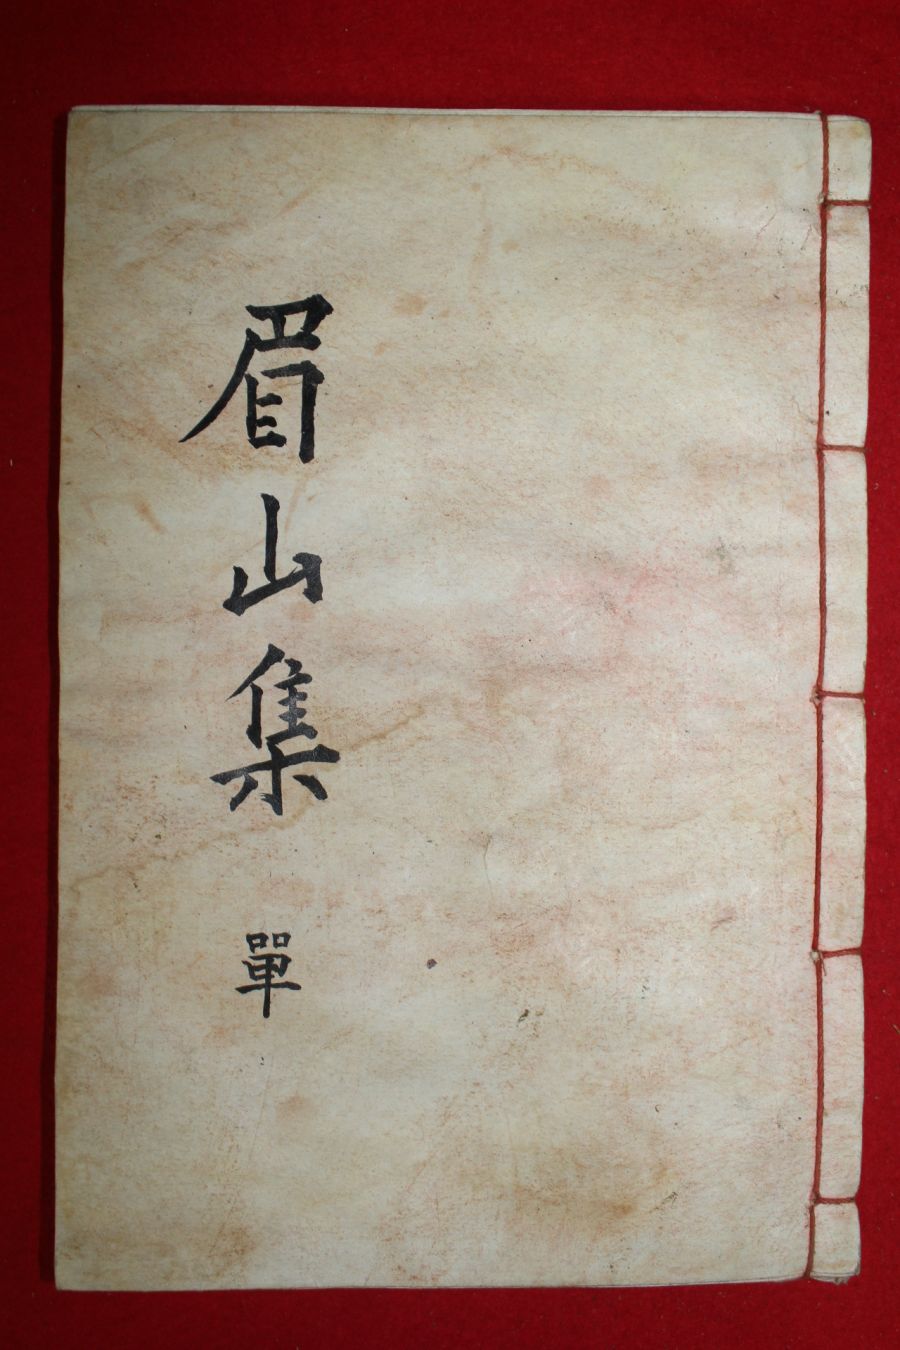 眉山集
單